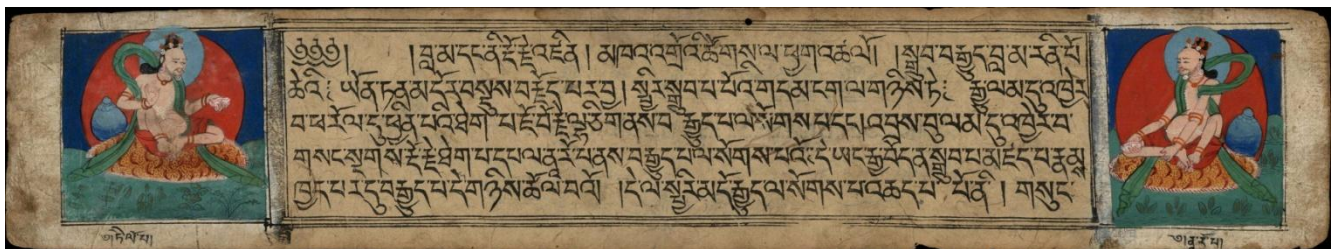 ༄༅༅། །བླ་མ་དང་ནི་རྡོ་རྗེ་འཛིན། མཁའ་འགྲོའི་ཚོགས་ལ་ཕྱག་འཚལ་ལོ། །སྒྲུབ་བརྒྱུད་བླ་མ་རིན་པོ་
ཆེའི༔ ཡོན་ཏན་མདོར་བསྡུས་བརྗོད་པར་བྱ། སྤྱིར་སྒྲུབ་པ་པོའི་གདམ་ངག་ལ་གཉིས་ཏེ༔ རྒྱུ་ལམ་དུ་འཁྱེར་
བ་ཕ་རོལ་དུ་ཕྱིན་པའི་ཐེག་པ་ཇོ་བོ་རྗེ་ལྷ་ཅིག་ནས་བརྒྱུད་པ་ལ་སོགས་པ་དང། འབྲས་བུ་ལམ་དུ་འཁྱེར་བ་
གསང་སྔགས་རྡོ་རྗེ་ཐེག་པ་དཔལ་ནཱ་རོ་པ་ནས་བརྒྱུད་པ་ལ་སོགས་པའོ༔ དེ་ཡང་རྒྱ་བོད་ན་སྒྲུབ་པ་མཛད་པ་རྣམས་
ཁྱད་པར་དུ་བརྒྱུད་པ་དེ་གཉིས་ཚོལ་བའོ། །དེ་ལ་སྤྱིར་མདོ་རྒྱུད་ལ་སོགས་པ་འཆད་པ་པོ་ནི། གསུང་
ཏི་ལོ་པ།
ན་རོ་པ།